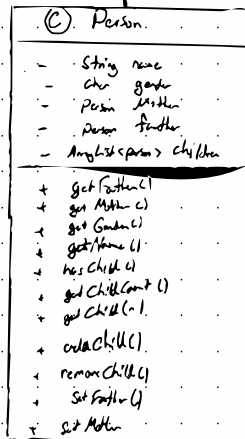 © Person
- String name
- char gender
- Person Mother
- Person father
- ArrayList<person> children
+ getFather()
+ get Mother()
+ get Gender()
+ getName()
+ hasChild()
+ get ChildCount()
+ get Child(n)
+ addChild()
+ removeChild()
+ Set Father()
+ Set Mother